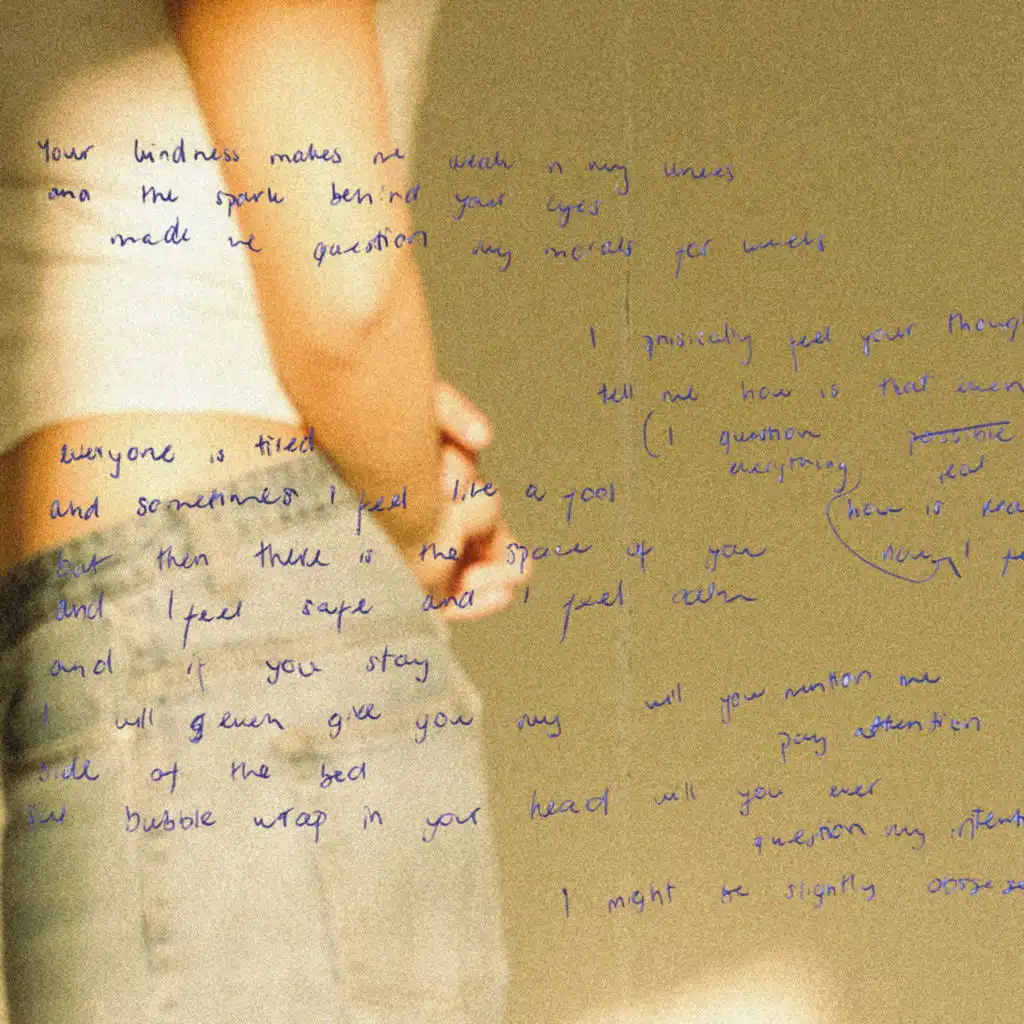 Your kindness makes me weak in my knees
and the spark behind your eyes
made me question my morals for weeks
I phisically feel your
tell me how is that
(I question possible
everything) real
how is
how I
everyone is tired
and sometimes I feel like a fool
but then there is the space of you
and I feel safe and I feel calm
and if you stay
I will even give you my
side of the bed
bubble wrap in your head
will you mention me
pay attention
will you ever
question my
I might be slightly